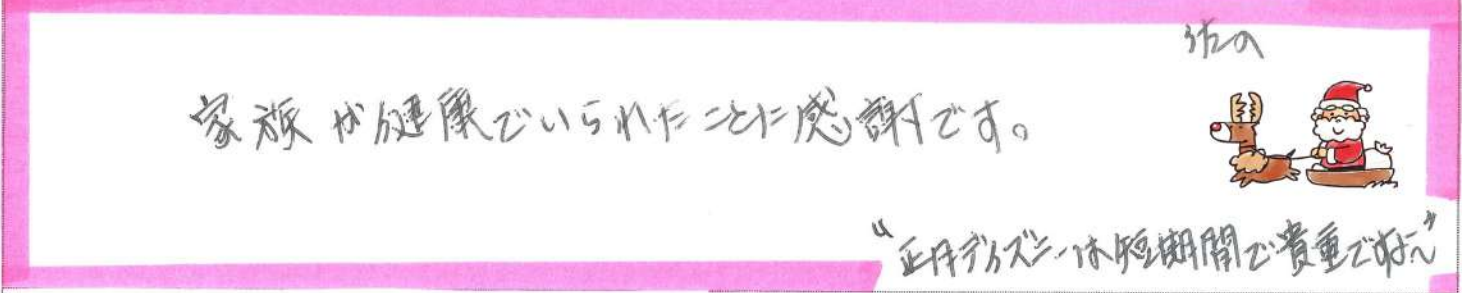 佐の
家族が健康でいられたことに感謝です。
"正月ディズニーは短期間で貴重ですね~"